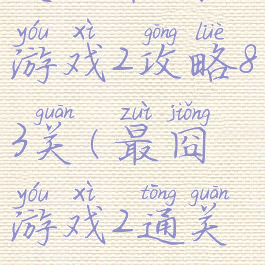 yóu xì gōng lüè
游戏2攻略8
guān zuì jiǒng
3关(最囧
yóu xì tōng guān
游戏2通关